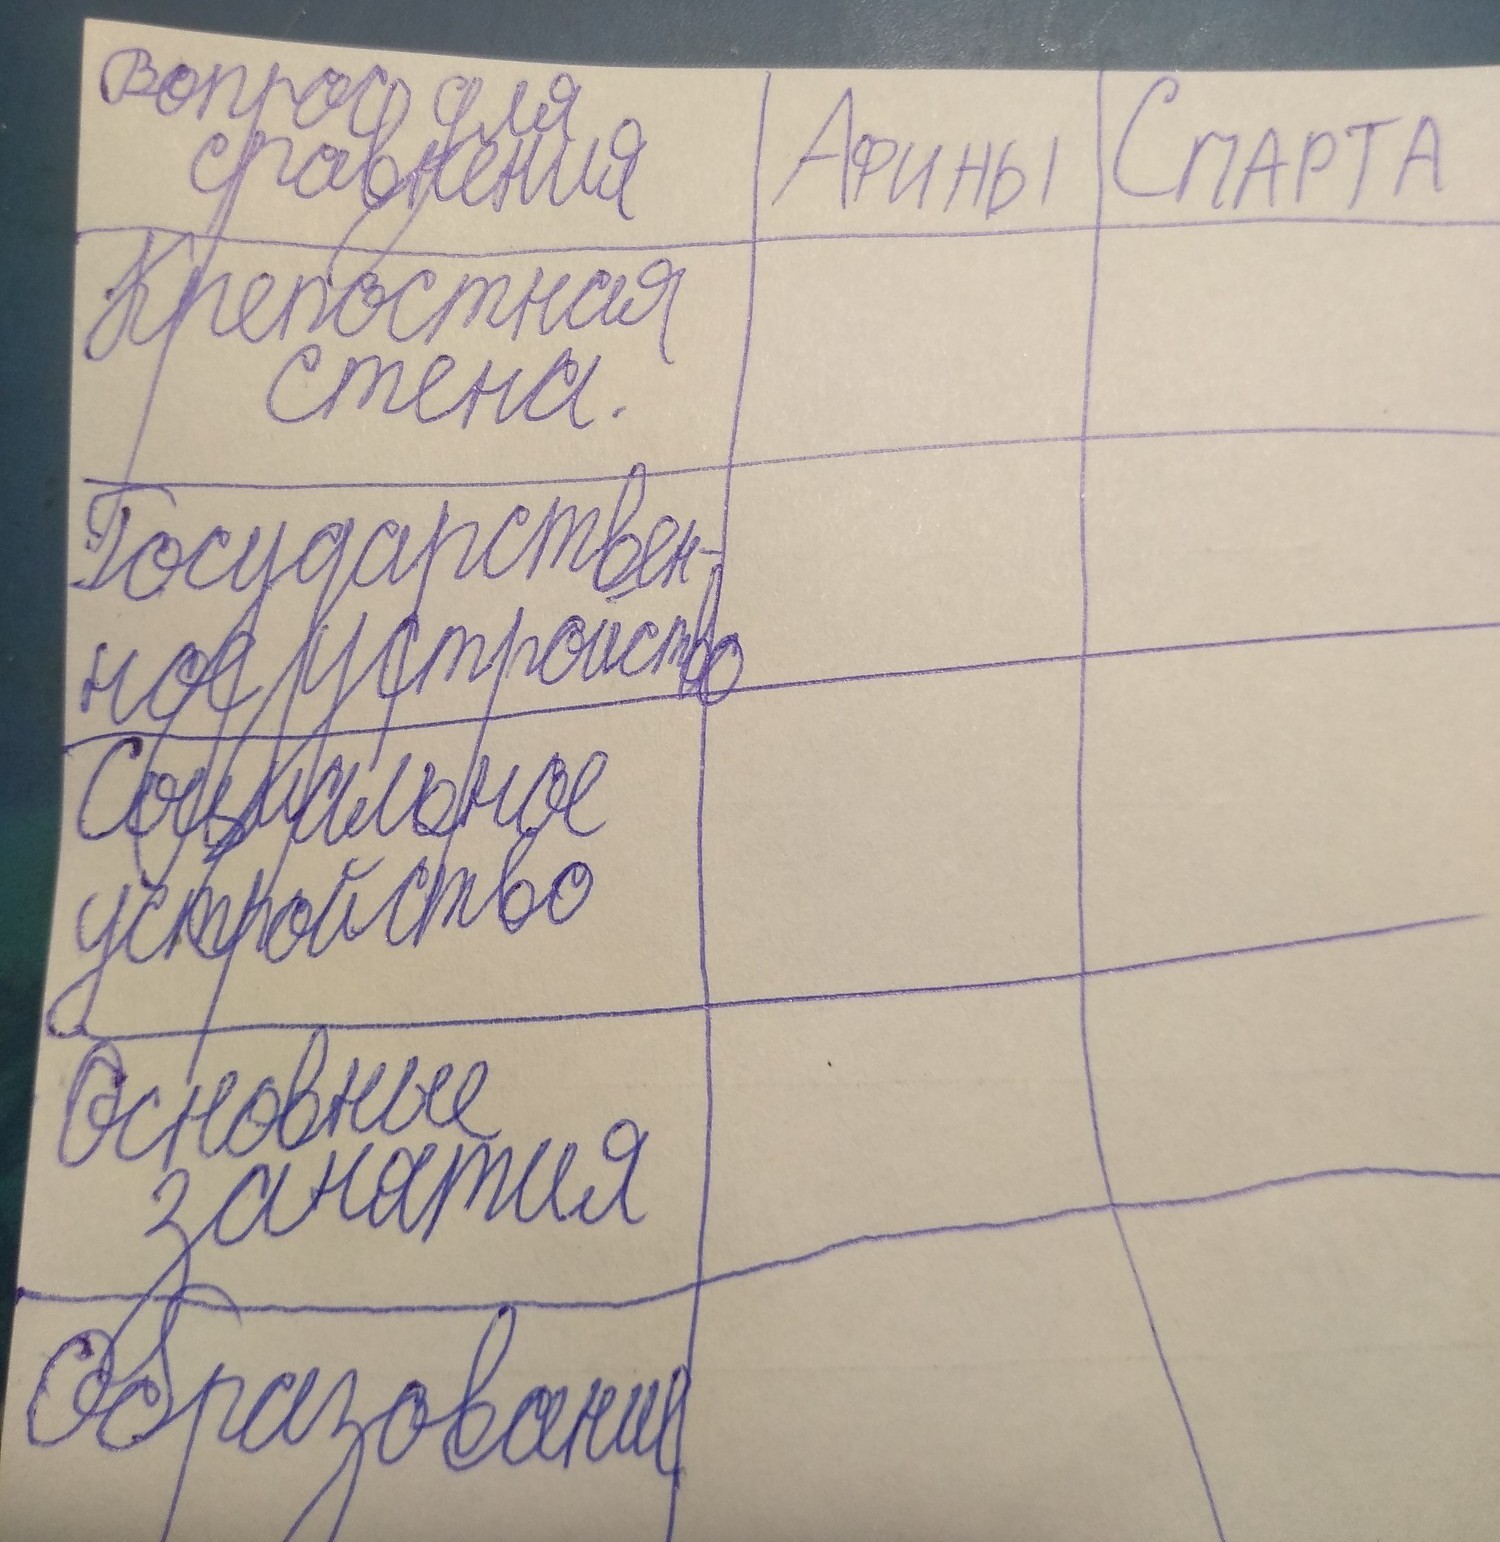 Вопрос для
сравнения
Афины
Спарта
Крепостная
стена.
Государствен-
ное устройство
Социальное
устройство
Основные
занятия
Образование